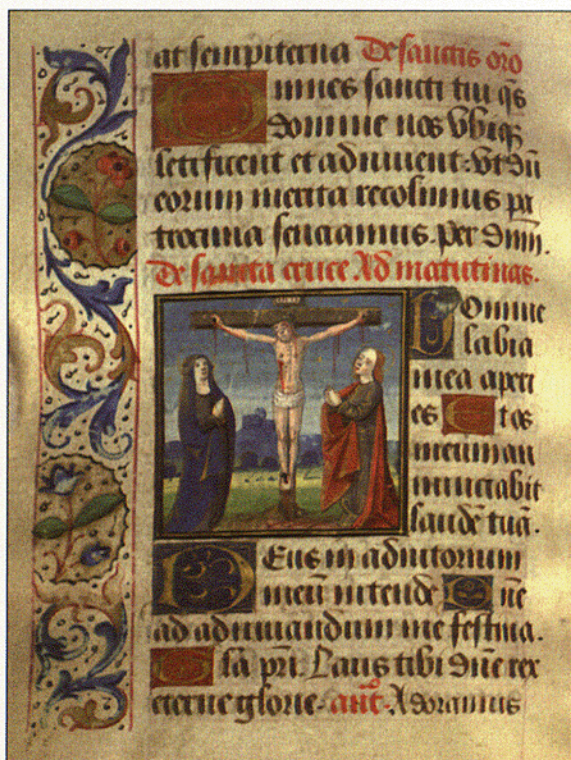 at sempiterna De sanctis orõ
Omnes sancti tui q̃s
domine nos vbiq
letificent et adiuuent: vt dũ
eorum merita recolimus pa
trocinia senciamus. per dnm̃.
De sancta cruce Ad matutinas.
Domine
labia
mea aperi
es Et os
meum an
nunciabit
laudẽ tuã.
Deus in adiutorium
meũ intende Dñe
ad adiuuandum me festina.
Gl̃a pr̃i. Laus tibi dñe rex
eterne glorie. añt. Adoramus